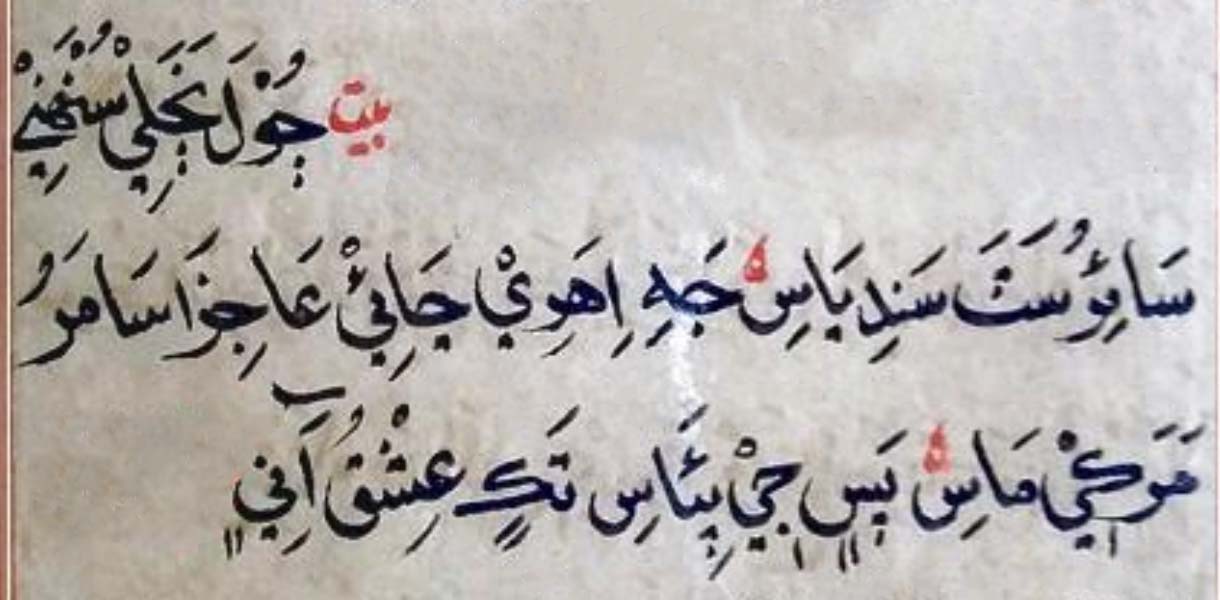 بيت جُوْلَ بَخِلِيْ سُنْهَنِيْ
سَائِوُسَتَ سَندِيَاسِ جَهِ اِهَوِيْ جَائِيْ عَاجِزَا سَامَرُ
مَرَکِيْ مَاسِ پَسِ جِيْ پِئَاسِ تَکِ عِشْقُ اَنِي